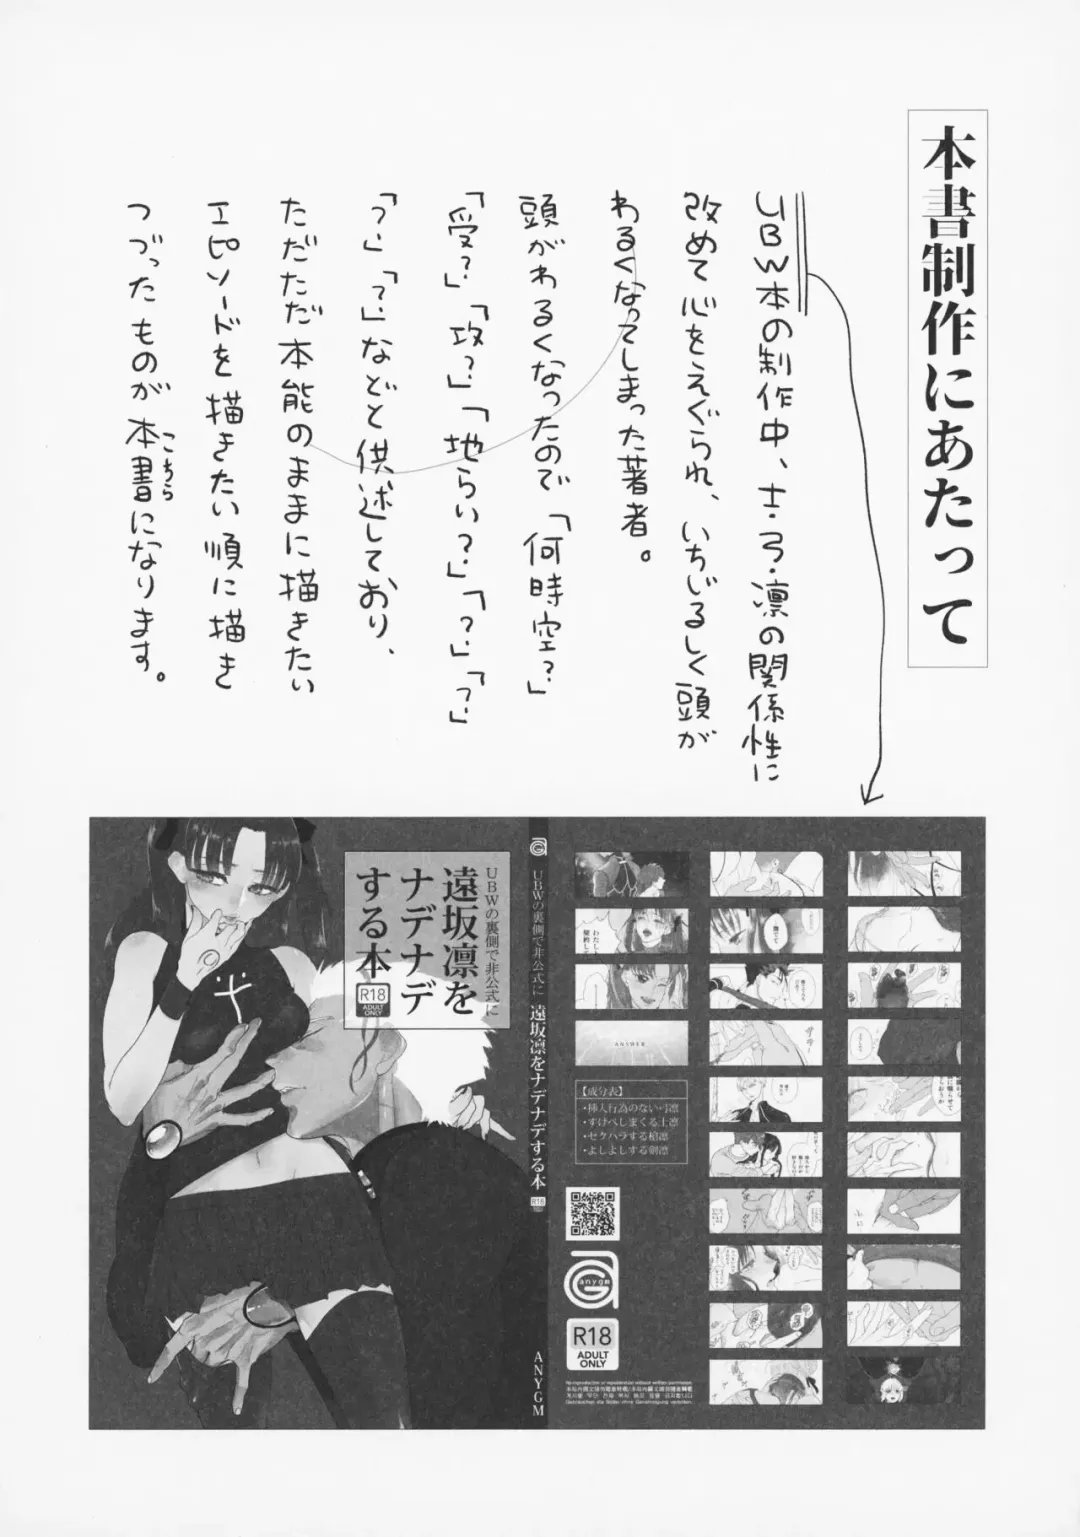 本書制作にあたって
UBW本の制作中、士・弓・凛の関係性に
改めて心をえぐられ、いちじるしく頭が
わるくなってしまった著者。
頭がわるくなったので「何時空?」
「受?」「攻?」「地らい?」「?」「?」
「?」「?」などと供述しており、
ただただ本能のままに描きたい
エピソードを描きたい順に描き
つづったものが本書になります。
こちら
UBWの裏側で非公式に
遠坂凛を
ナデナデ
する本
R18
ADULT
ONLY
UBWの裏側で非公式に 遠坂凛をナデナデする本
R18
ANYGM
ANSWER
【成分表】
・挿入行為のない弓凛
・すけべしまくる士凛
・セクハラする槍凛
・よしよしする剣凛
anygm
R18
ADULT
ONLY
No reproduction or republication without written permission.